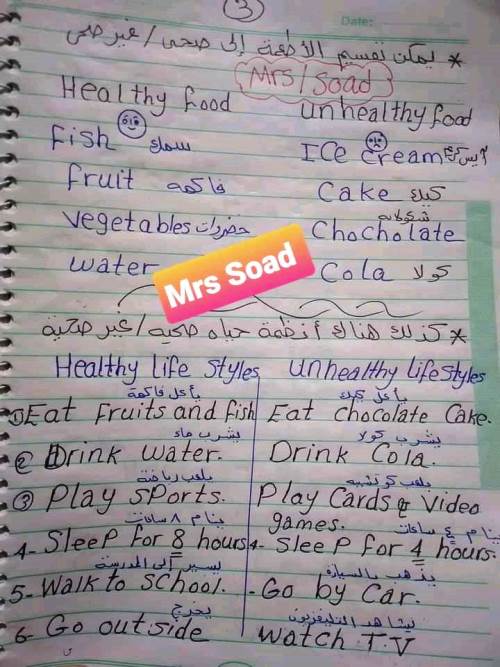 3
Date:
* يمكن تقسيم الأطعمة إلى صحى / غير صحى
Mrs/Soad
Healthy food unhealthy food
Fish سمك ICe cream آيس كريم
Fruit فاكهة Cake كيك
شيكولاتة
vegetables خضروات Chocholate
water Cola كولا
Mrs Soad
* كذلك هناك أنظمة حياه صحيه / غير صحية
Healthy life styles unhealthy lifestyles
يأكل فاكهة يأكل كيك
① Eat Fruits and fish Eat chocolate Cake.
يشرب ماء يشرب كولا
② Drink water. Drink Cola.
يلعب رياضة يلعب كوتشينه
③ Play sports. Play Cards & video games.
ينام ٨ ساعات ينام ٤ ساعات
4- Sleep for 8 hours 4- Sleep for 4 hours.
يسير إلى المدرسة يذهب بالسيارة
5- Walk to school. - Go by Car.
يخرج يشاهد التليفزيون
6- Go outside watch T.V